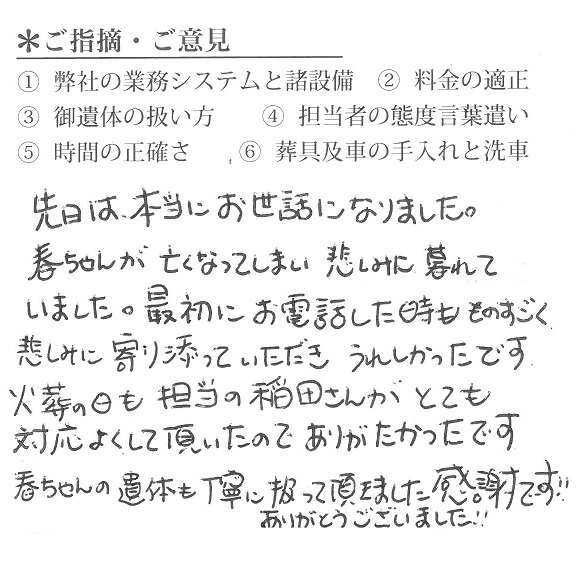 ＊ご指摘・ご意見
① 弊社の業務システムと諸設備 ② 料金の適正
③ 御遺体の扱い方 ④ 担当者の態度言葉遣い
⑤ 時間の正確さ ⑥ 葬具及車の手入れと洗車
先日は、本当にお世話になりました。
春ちゃんが亡くなってしまい悲しみに暮れて
いました。最初にお電話した時もものすごく
悲しみに寄り添っていただきうれしかったです
火葬の日も担当の稲田さんがとても
対応よくして頂いたのでありがたかったです
春ちゃんの遺体も丁寧に扱って頂きました感謝です!!
ありがとうございました!!